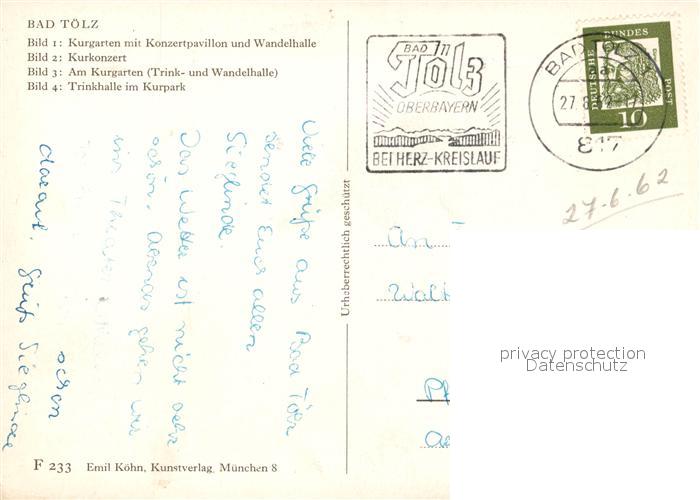 BAD TÖLZ
Bild 1: Kurgarten mit Konzertpavillon und Wandelhalle
Bild 2: Kurkonzert
Bild 3: Am Kurgarten (Trink- und Wandelhalle)
Bild 4: Trinkhalle im Kurpark
Viele Grüße aus Bad Tölz
sendet Euch allen
Sieglinde.
Das Wetter ist nicht sehr
schön. Abends gehen wir
ins Theater
schon
darauf. Gruß Sieglinde
F 233 Emil Köhn, Kunstverlag, München 8
Urheberrechtlich geschützt
BAD
Tölz
OBERBAYERN
BEI HERZ-KREISLAUF
BAD TÖLZ
27.8
817
DEUTSCHE BUNDESPOST
10
27.6.62
An
Walt
privacy protection
Datenschutz